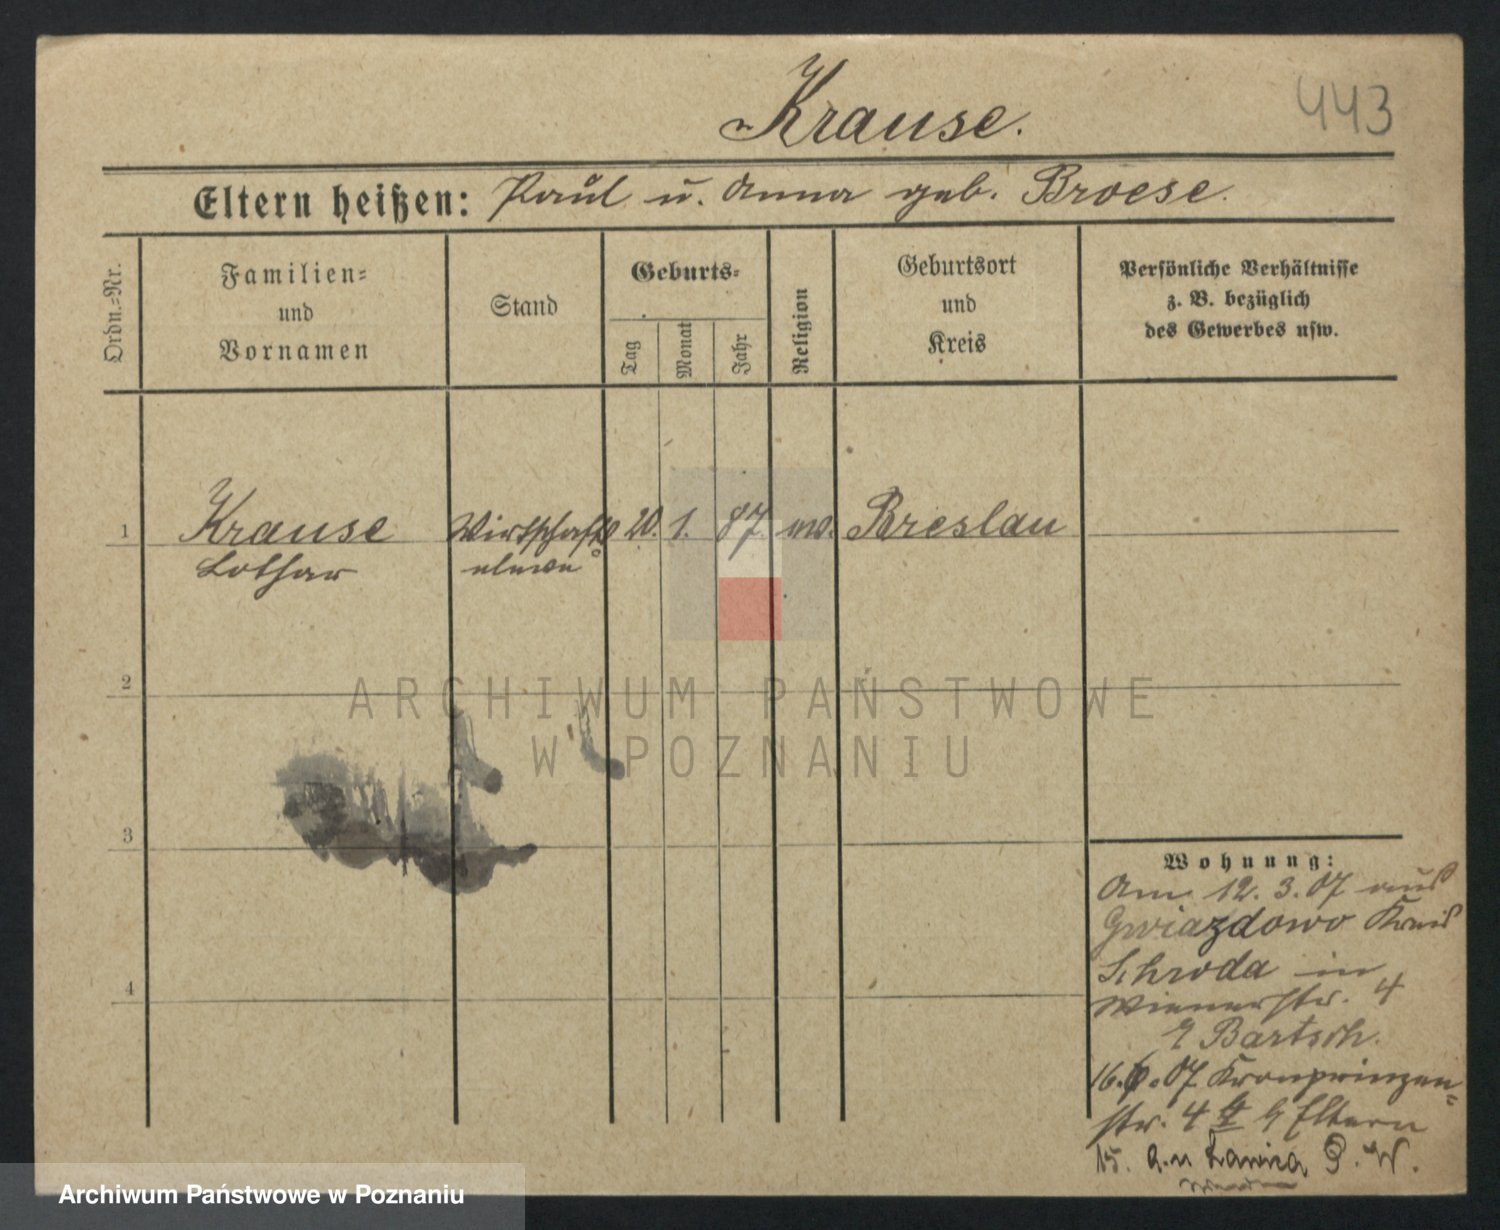 443
Krause.
Eltern heißen: Paul u. Anna geb. Broese.
Ordn.-Nr.
Familien-
und
Vornamen
Stand
Geburts-
Tag
Monat
Jahr
Religion
Geburtsort
und
Kreis
Persönliche Verhältnisse
z. B. bezüglich
des Gewerbes usw.
1
Krause
Lothar
Wirtschafts-
eleve
20.
1.
87.
ev.
Breslau
2
ARCHIWUM PAŃSTWOWE
W POZNANIU
3
4
Wohnung:
Am 12. 3. 07 aus
Gwiazdowo Kreis
Schroda in
Wienerstr. 4
Bartsch.
16. 07 Kronprinzen-
str. 4 Eltern
15. Ławica P. W.
Archiwum Państwowe w Poznaniu